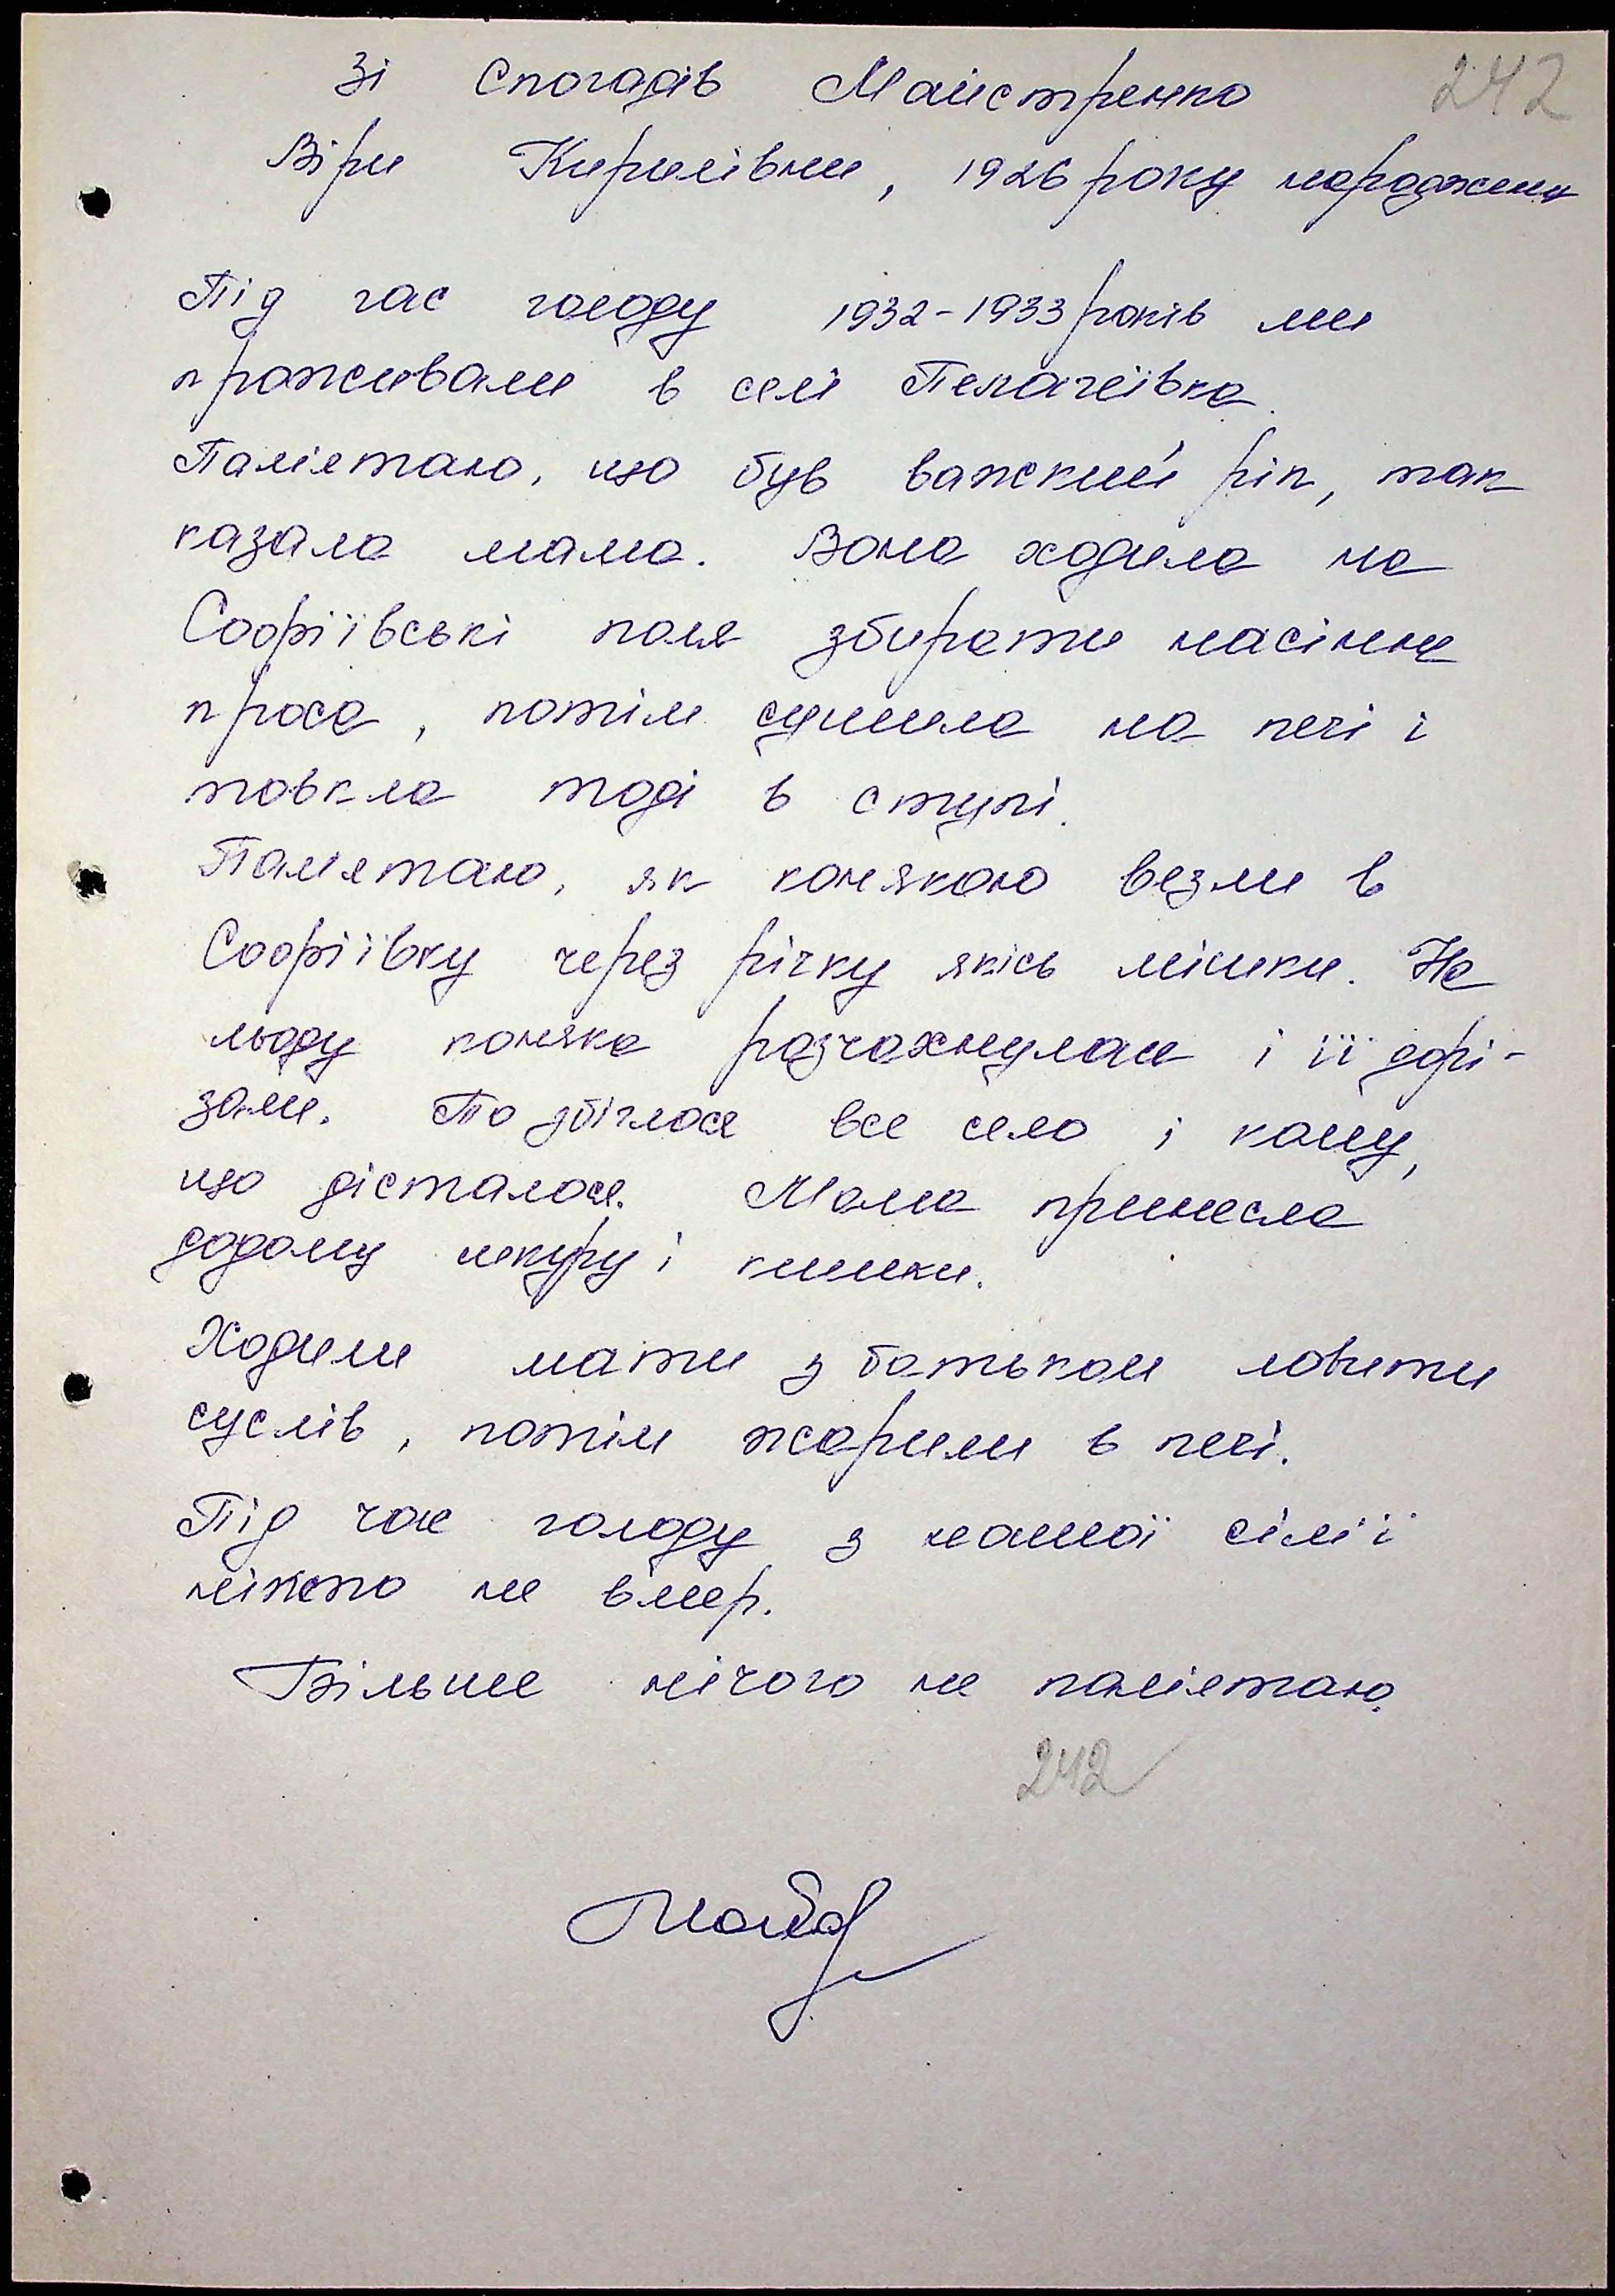 242
Зі спогадів Майстренко
Віри Кирилівни, 1926 року народження
Під час голоду 1932-1933 років ми
проживали в селі Пелагеївка.
Пам'ятаю, що був важкий рік, так
казала мама. Вона ходила на
Софіївські поля збирати насіння
проса, потім сушила на печі і
товкла тоді в ступі.
Пам'ятаю, як конякою везли в
Софіївку через річку якісь мішки. На
льоду коняка розчахнулась і її дорі-
зали. То збіглося все село і кому,
що дісталося. Мама принесла
додому шкуру і кишки.
Ходили мати з батьком ловити
суслів, потім жарили в печі.
Під час голоду з нашої сім'ї
ніхто не вмер.
Більше нічого не пам'ятаю.
242